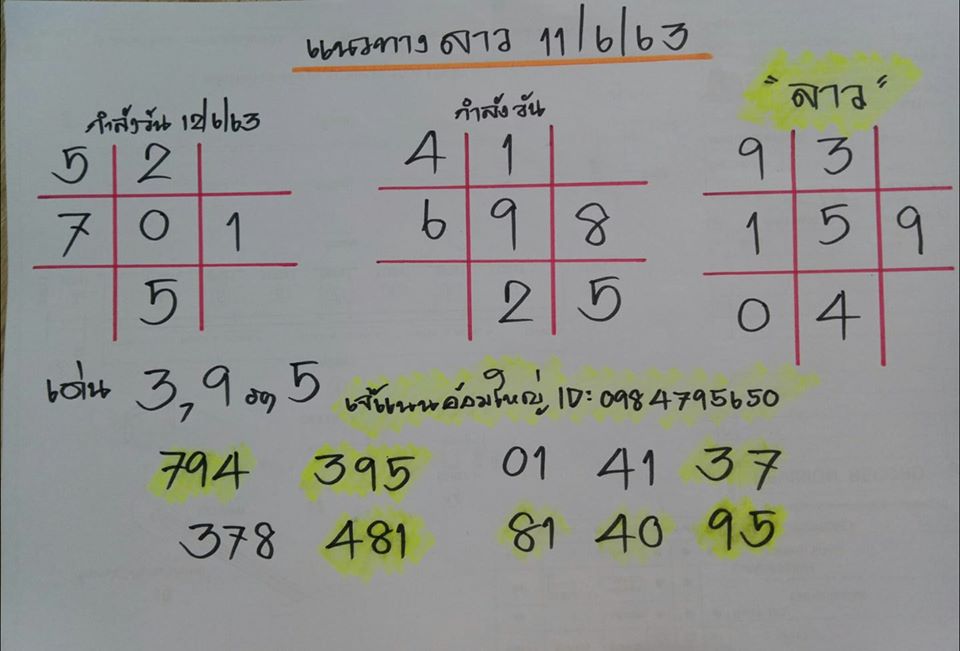 แนวทางลาว 11/6/63
กำลังวัน 12/6/63
5 2
7 0 1
5
กำลังวัน
4 1
6 9 8
2 5
"ลาว"
9 3
1 5 9
0 4
เด่น 3,9 รอง 5
เจ๊แนนอ้อมใหญ่ ID: 0984795650
794 395 01 41 37
378 481 81 40 95